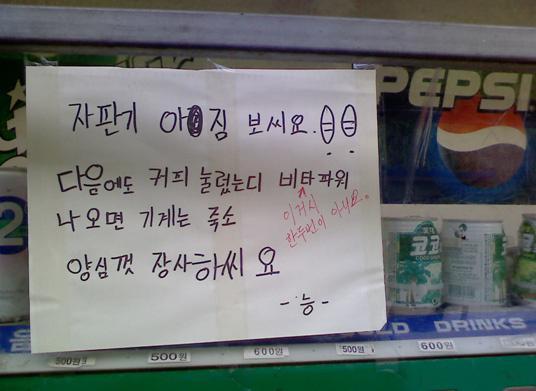 자판기 아짐 보씨요.
다음에도 커피 눌렀는디 비타파워
나오면 기계는 죽소
이거시
한두번이 아니요.
양심껏 장사하씨요
- 능 -
PEPSI
2
코코
LD DRINKS
500원 500원 600원 500원 600원